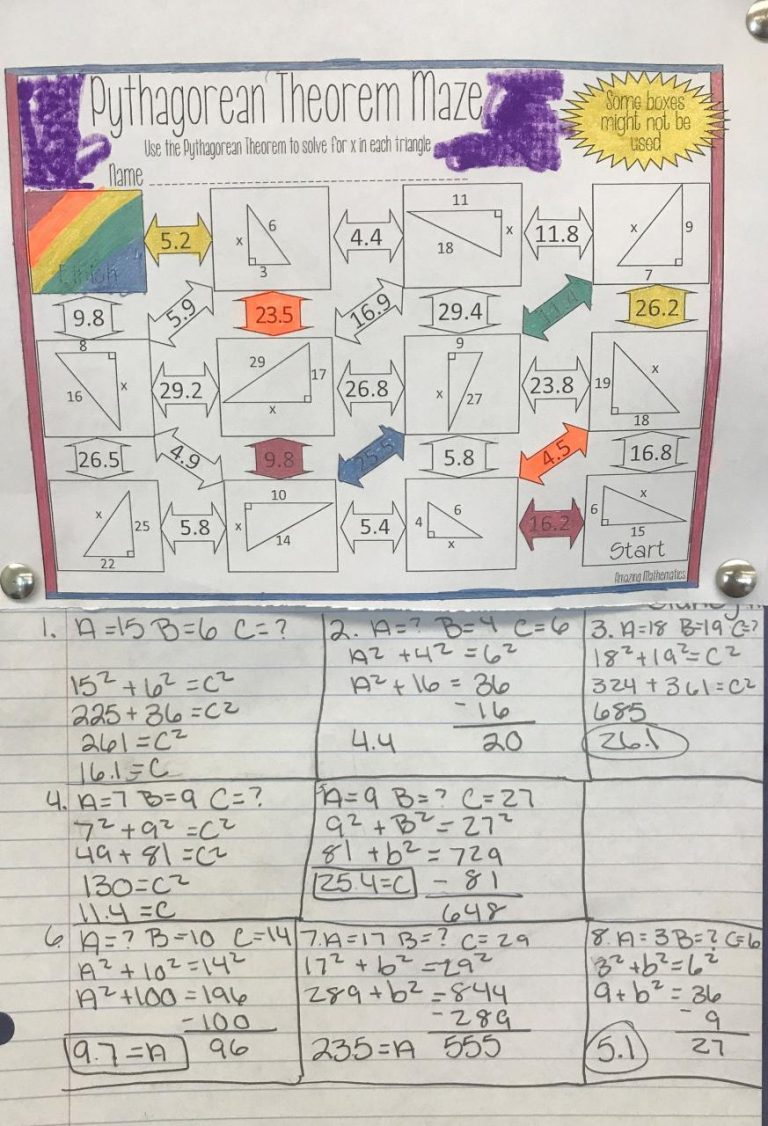 Pythagorean Theorem Maze
Some boxes
might not be
used
Use the Pythagorean Theorem to solve for x in each triangle
Name
Finish
5.2
x 6 3
4.4
11 x 18
11.8
x 9 7
9.8
5.9
23.5
16.9
29.4
11.4
26.2
8 16 x
29.2
29 17 x
26.8
9 x 27
23.8
19 x 18
26.5
4.9
9.8
25.5
5.8
4.5
16.8
x 25 22
5.8
10 x 14
5.4
4 6 x
16.2
6 x 15
Start
Amazing Mathematics
1. A=15 B=6 C=?
15² + 6² = C²
225 + 36 = C²
261 = C²
16.1 = C
2. A=? B=4 C=6
A² + 4² = 6²
A² + 16 = 36
- 16
4.4 20
3. A=18 B=19 C=?
18² + 19² = C²
324 + 361 = C²
685
26.1
4. A=7 B=9 C=?
7² + 9² = C²
49 + 81 = C²
130 = C²
11.4 = C
5 A=9 B=? C=27
9² + B² = 27²
81 + b² = 729
25.4=C - 81
648
6. A=? B=10 C=14
A² + 10² = 14²
A² + 100 = 196
- 100
9.7 = A 96
7. A=17 B=? C=29
17² + b² = 29²
289 + b² = 844
- 289
235 = A 555
8. A=3 B=? C=6
3² + b² = 6²
9 + b² = 36
- 9
5.1 27